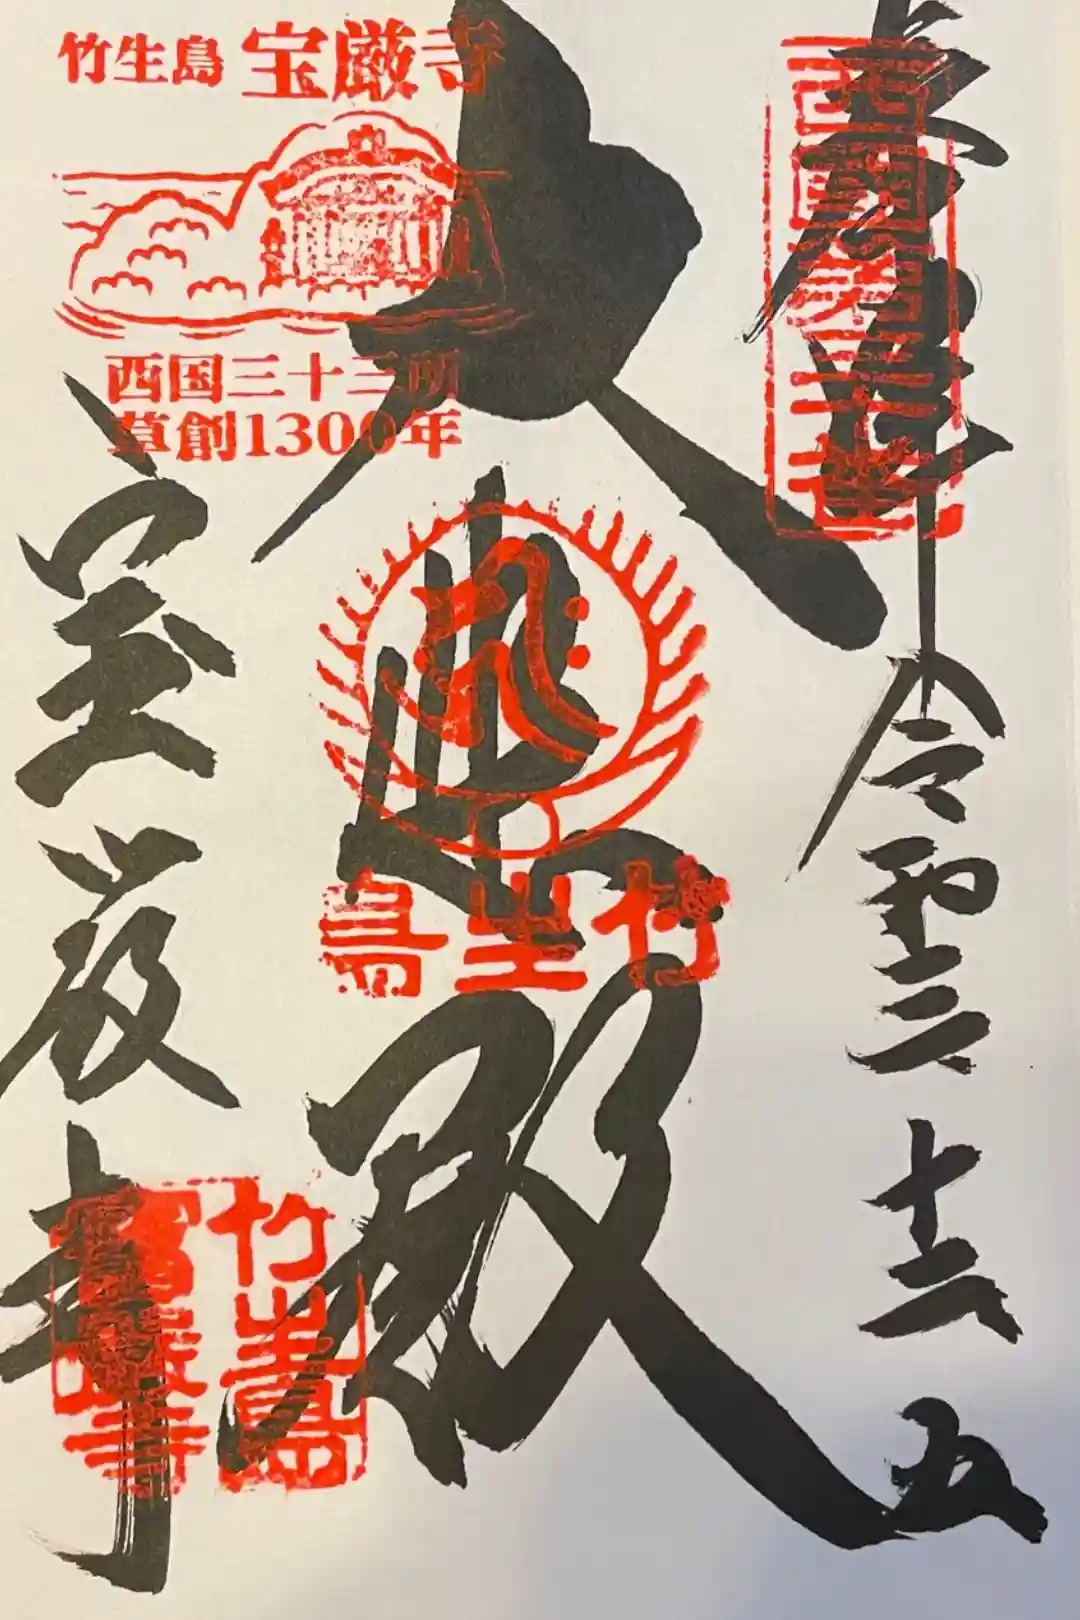 奉拝
西國第三十番
令和三 十二 五
大悲殿
竹生島
竹生島 宝厳寺
西国三十三所
草創1300年
宝厳寺
竹生島
寳厳寺